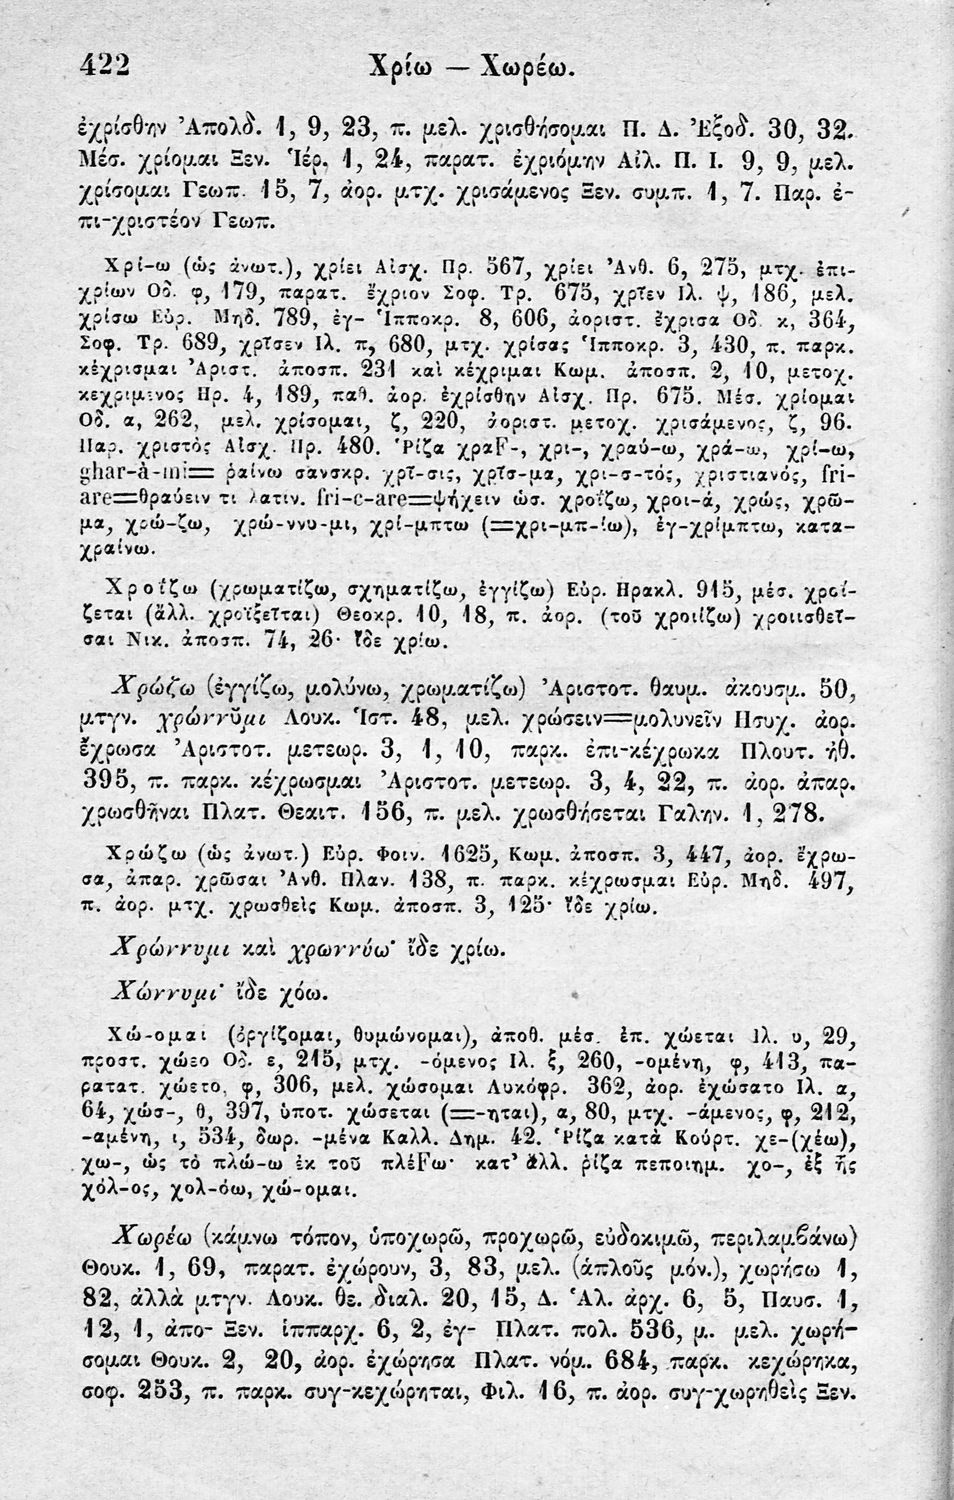 422
Χρίω — Χωρέω.
ἐχρίσθην Ἀπολδ. 1, 9, 23, π. μελ. χρισθήσομαι Π. Δ. Ἐξοδ. 30, 32.
Μέσ. χρίομαι Ξεν. Ἱέρ. 1, 24, παρατ. ἐχριόμην Αἰλ. Π. Ι. 9, 9, μελ.
χρίσομαι Γεωπ. 15, 7, ἀορ. μτχ. χρισάμενος Ξεν. συμπ. 1, 7. Παρ. ἐ-
πι-χριστέον Γεωπ.
Χρί-ω (ὡς ἀνωτ.), χρίει Αἰσχ. Πρ. 567, χρίει Ἀνθ. 6, 275, μτχ. ἐπι-
χρίων Οδ. φ, 179, παρατ. ἔχριον Σοφ. Τρ. 675, χρῖεν Ιλ. ψ, 186, μελ.
χρίσω Εὐρ. Μηδ. 789, ἐγ- Ἱπποκρ. 8, 606, ἀοριστ. ἔχρισα Οδ. κ, 364,
Σοφ. Τρ. 689, χρῖσεν Ιλ. π, 680, μτχ. χρίσας Ἱπποκρ. 3, 430, π. παρκ.
κέχρισμαι Ἀριστ. ἀποσπ. 231 καὶ κέχριμαι Κωμ. ἀποσπ. 2, 10, μετοχ.
κεχριμένος Ηρ. 4, 189, παθ. ἀορ. ἐχρίσθην Αἰσχ. Πρ. 675. Μέσ. χρίομαι
Οδ. α, 262, μελ. χρίσομαι, ζ, 220, ἀοριστ. μετοχ. χρισάμενος, ζ, 96.
Παρ. χριστὸς Αἰσχ. Πρ. 480. Ῥίζα χραF-, χρι-, χραύ-ω, χρά-ω, χρί-ω,
ghar-à-mi= ῥαίνω σανσκρ. χρῖ-σις, χρῖσ-μα, χρι-σ-τός, χριστιανός, fri-
are=θραύειν τι λατιν. fri-c-are=ψήχειν ὡσ. χροΐζω, χροι-ά, χρώς, χρῶ-
μα, χρώ-ζω, χρώ-ννυ-μι, χρί-μπτω (=χρι-μπ-ίω), ἐγ-χρίμπτω, κατα-
χραίνω.
Χροΐζω (χρωματίζω, σχηματίζω, ἐγγίζω) Εὐρ. Ηρακλ. 915, μέσ. χροΐ-
ζεται (ἄλλ. χροϊξεῖται) Θεοκρ. 10, 18, π. ἀορ. (τοῦ χροιΐζω) χροιισθεῖ-
σαι Νικ. ἀποσπ. 74, 26· ἴδε χρίω.
Χρώζω (ἐγγίζω, μολύνω, χρωματίζω) Ἀριστοτ. θαυμ. ἀκουσμ. 50,
μτγν. χρώννῡμι Λουκ. Ἱστ. 48, μελ. χρώσειν=μολυνεῖν Ησυχ. ἀορ.
ἔχρωσα Ἀριστοτ. μετεωρ. 3, 1, 10, παρκ. ἐπι-κέχρωκα Πλουτ. ἠθ.
395, π. παρκ. κέχρωσμαι Ἀριστοτ. μετεωρ. 3, 4, 22, π. ἀορ. ἀπαρ.
χρωσθῆναι Πλατ. Θεαιτ. 156, π. μελ. χρωσθήσεται Γαλην. 1, 278.
Χρώζω (ὡς ἀνωτ.) Εὐρ. Φοιν. 1625, Κωμ. ἀποσπ. 3, 447, ἀορ. ἔχρω-
σα, ἀπαρ. χρῶσαι Ἀνθ. Πλαν. 138, π. παρκ. κέχρωσμαι Εὐρ. Μηδ. 497,
π. ἀορ. μτχ. χρωσθεὶς Κωμ. ἀποσπ. 3, 125· ἴδε χρίω.
Χρώννυμι καὶ χρωννύω· ἴδε χρίω.
Χώννυμι· ἴδε χόω.
Χώ-ομαι (ὀργίζομαι, θυμώνομαι), ἀποθ. μέσ. ἐπ. χώεται Ιλ. υ, 29,
προστ. χώεο Οδ. ε, 215, μτχ. -όμενος Ιλ. ξ, 260, -ομένη, φ, 413, πα-
ρατατ. χώετο, φ, 306, μελ. χώσομαι Λυκόφρ. 362, ἀορ. ἐχώσατο Ιλ. α,
64, χώσ-, θ, 397, ὑποτ. χώσεται (=-ηται), α, 80, μτχ. -άμενος, φ, 212,
-αμένη, ι, 534, δωρ. -μένα Καλλ. Δημ. 42. Ῥίζα κατὰ Κούρτ. χε-(χέω),
χω-, ὡς τὸ πλώ-ω ἐκ τοῦ πλέFω· κατ' ἄλλ. ῥίζα πεποιημ. χο-, ἐξ ἧς
χόλ-ος, χολ-όω, χώ-ομαι.
Χωρέω (κάμνω τόπον, ὑποχωρῶ, προχωρῶ, εὐδοκιμῶ, περιλαμβάνω)
Θουκ. 1, 69, παρατ. ἐχώρουν, 3, 83, μελ. (ἁπλοῦς μόν.), χωρήσω 1,
82, ἀλλὰ μτγν. Λουκ. θε. διαλ. 20, 15, Δ. Ἁλ. ἀρχ. 6, 5, Παυσ. 1,
12, 1, ἀπο- Ξεν. ἱππαρχ. 6, 2, ἐγ- Πλατ. πολ. 536, μ. μελ. χωρή-
σομαι Θουκ. 2, 20, ἀορ. ἐχώρησα Πλατ. νόμ. 684, παρκ. κεχώρηκα,
σοφ. 253, π. παρκ. συγ-κεχώρηται, Φιλ. 16, π. ἀορ. συγ-χωρηθεὶς Ξεν.